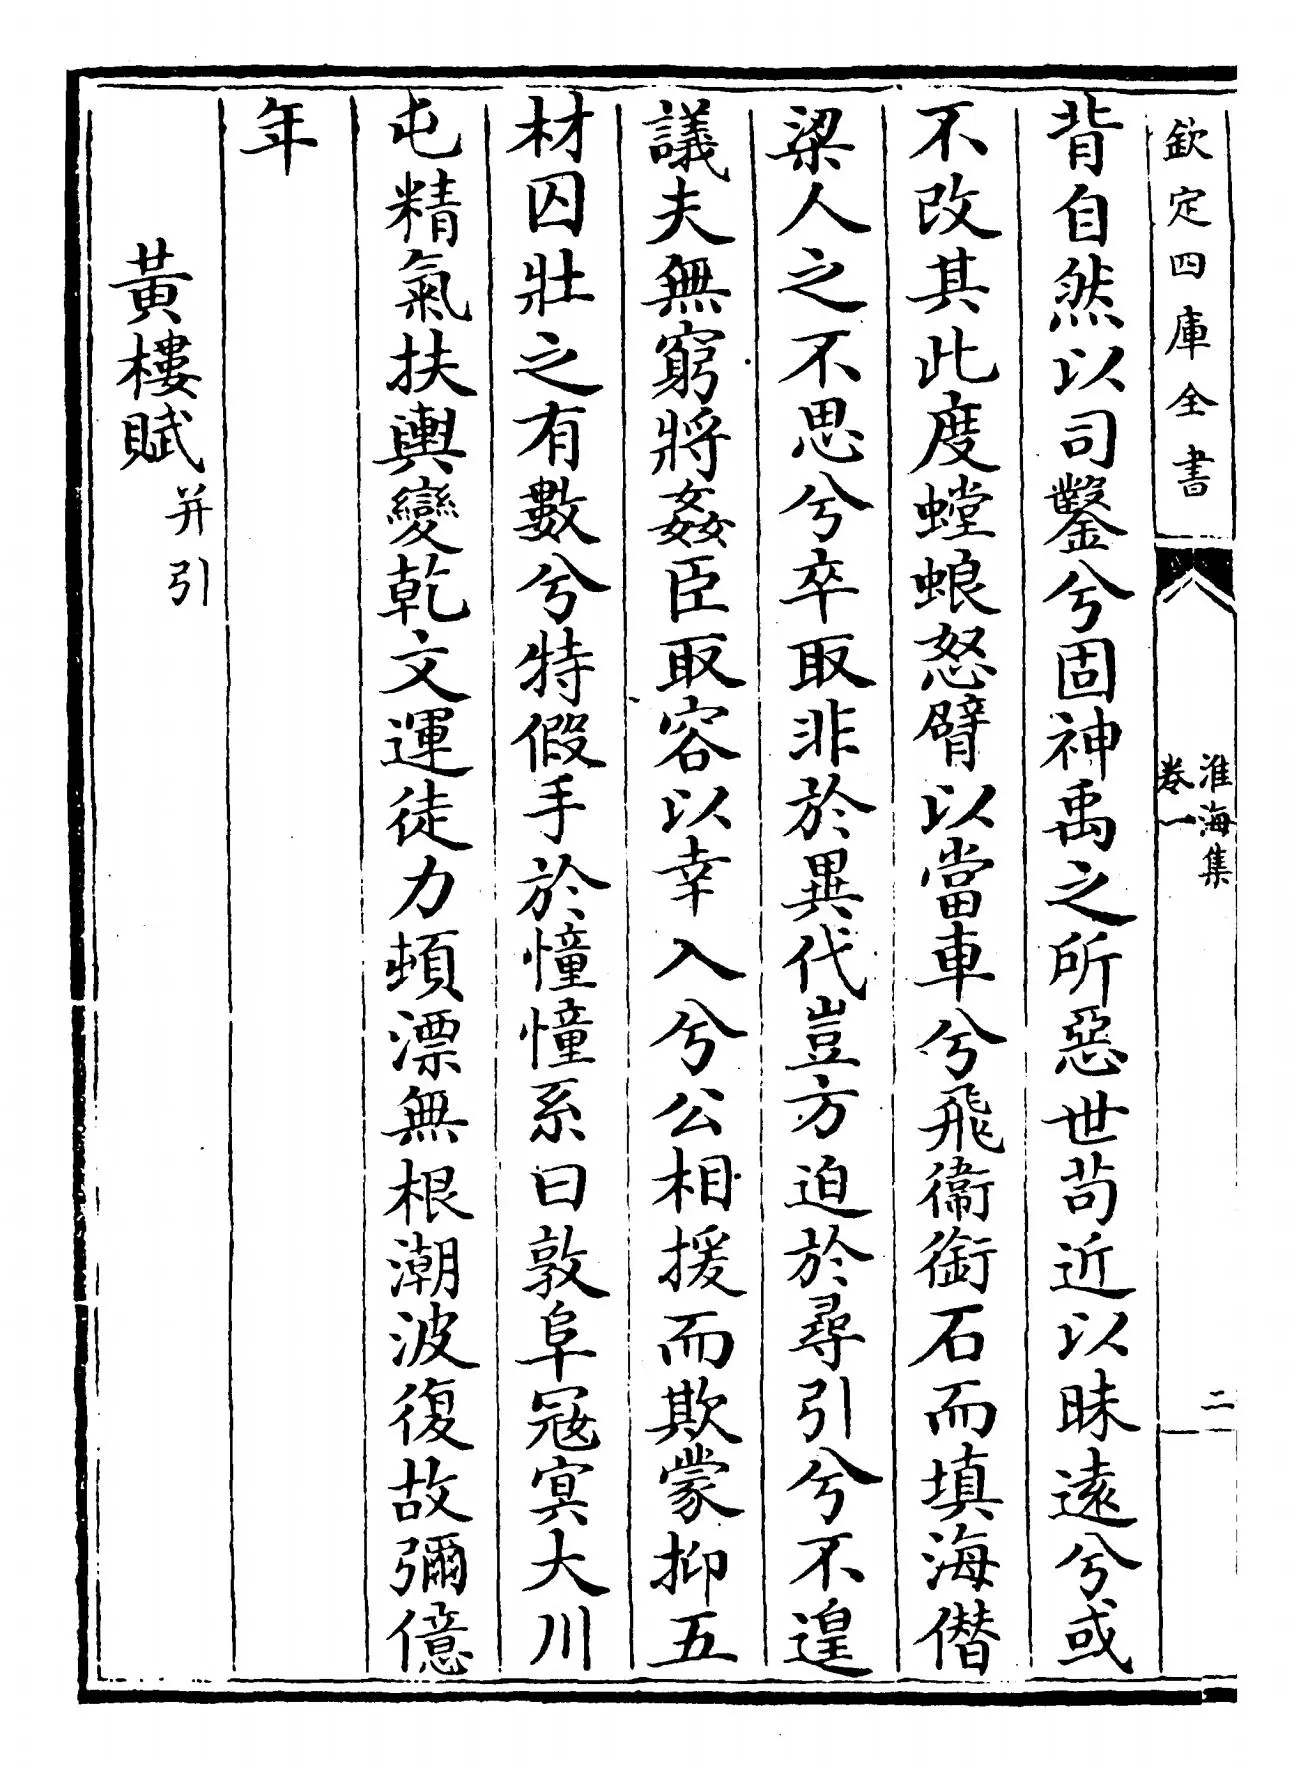 欽定四庫全書
淮海集
卷一
二
背自然以司鑿兮固神禹之所惡世苟近以昧遠兮或
不改其此度螳蜋怒臂以當車兮飛衞銜石而填海僭
梁人之不思兮卒取非於異代豈方迫於尋引兮不遑
議夫無窮將姦臣取容以幸入兮公相援而欺蒙抑五
材囚壯之有數兮特假手於憧憧系曰敦阜冦冥大川
屯精氣扶輿變乾文運徒力頓漂無根潮波復故彌億
年
黃樓賦
并引